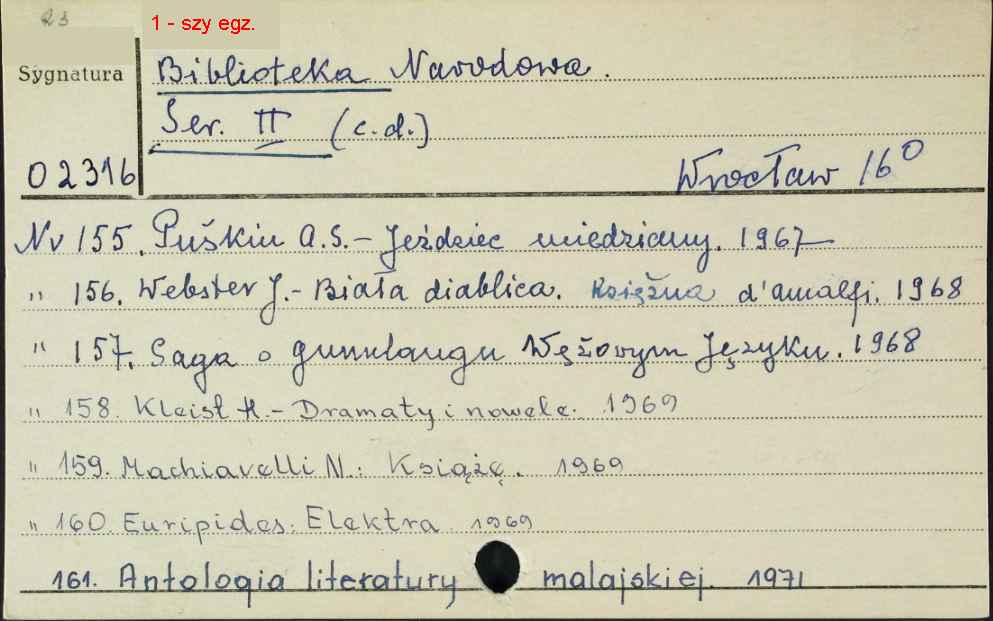 23
1 - szy egz.
Sygnatura
Biblioteka Narodowa.
Ser. II (c.d.)
02316
Wrocław 16⁰
Nr 155. Puškin A.S. - Jeździec miedziany. 1967
" 156. Webster J. - Biała diablica. Księżna d'amalfi. 1968
" 157. Saga o gunnlaugu Wężowym Języku. 1968
" 158. Kleist H. - Dramaty i nowele. 1969
" 159. Machiavelli N.: Książę. 1969
" 160. Euripides: Elektra 1969
161. Antologia literatury malajskiej. 1971